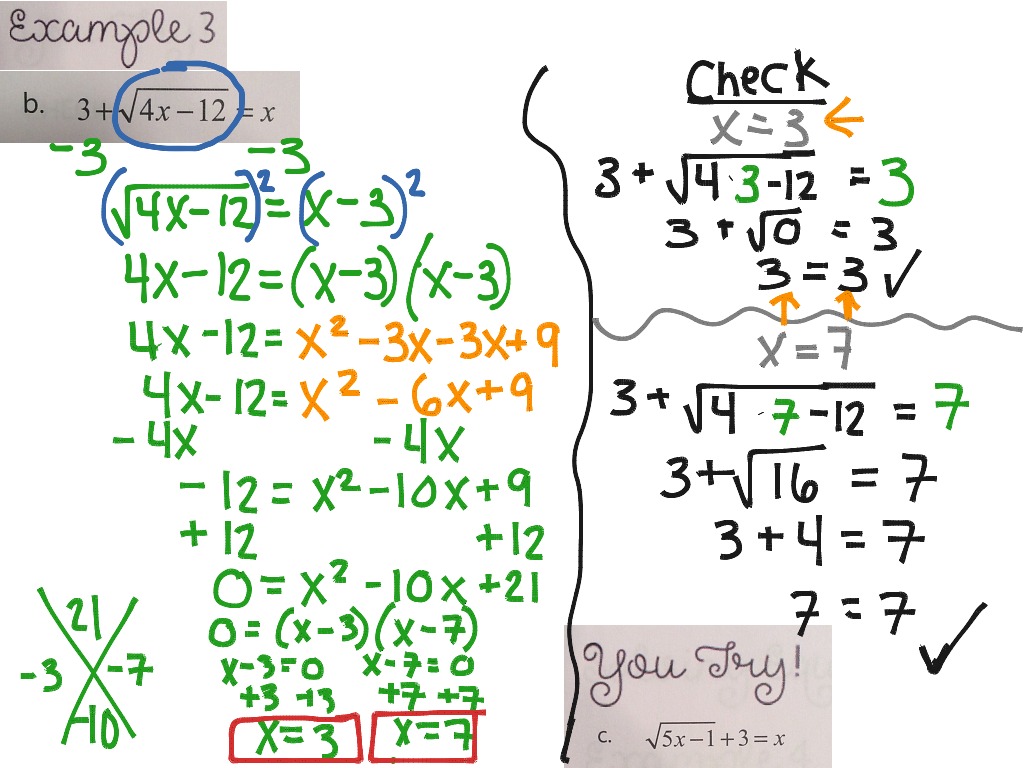 Example 3
b. 3+√(4x−12) = x
−3 −3
(√(4x−12))² = (x−3)²
4x−12 = (x−3)(x−3)
4x−12 = x²−3x−3x+9
4x−12 = x² −6x+9
−4x −4x
−12 = x²−10x+9
+12 +12
0 = x² −10x +21
0 = (x−3)(x−7)
x−3=0 x−7=0
+3 +3 +7 +7
x=3 x=7
21
−3 −7
−10
Check
x=3 ←
3+√(4·3−12) = 3
3+√0 = 3
3 = 3 ✓
↑ ↑
x=7
3+√(4·7−12) = 7
3+√16 = 7
3+4 = 7
7 = 7 ✓
You Try!
c. √(5x−1)+3 = x